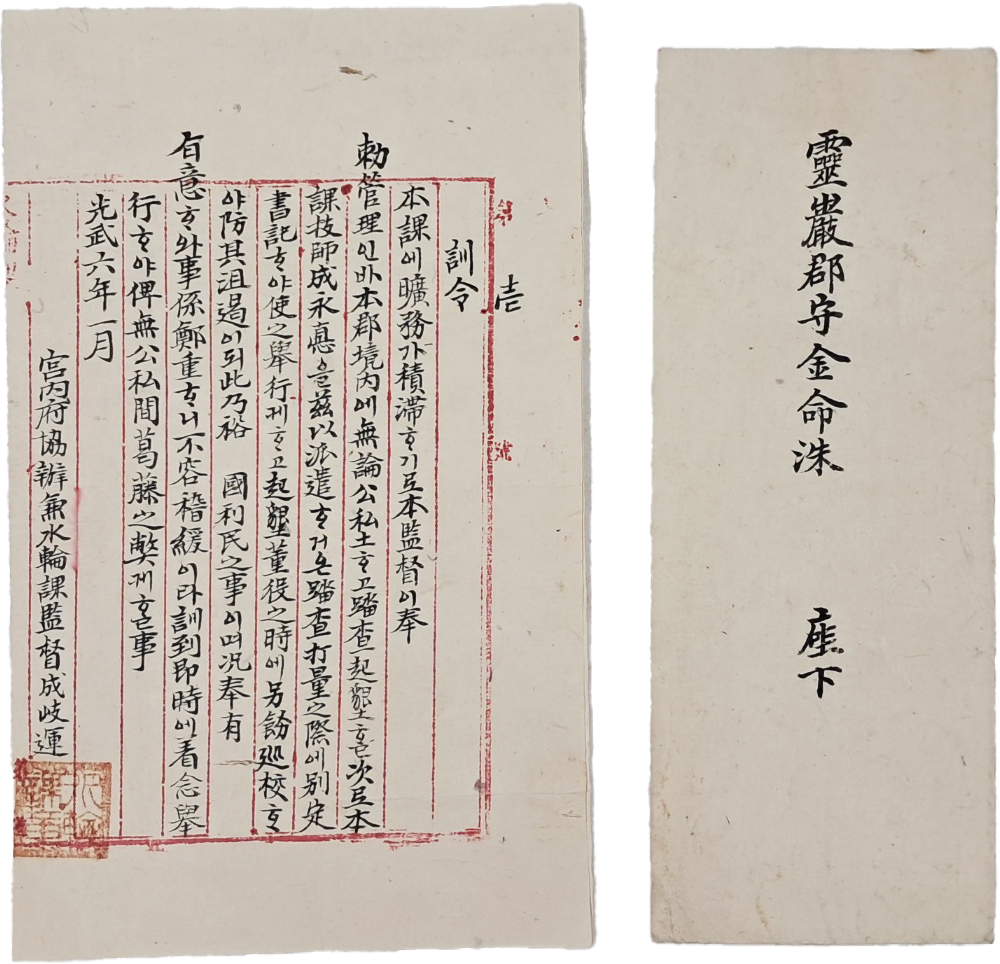 第壹號
訓令
本課에曠務가積滯ᄒᆞ기로本監督이奉
勅管理인바本郡境內에無論公私土ᄒᆞ고踏查起墾ᄒᆞᆯ次로本
課技師成永悳을玆以派遣ᄒᆞ거온踏查打量之際에別定
書記ᄒᆞ야使之擧行케ᄒᆞ고起墾董役之時에另飭廵校ᄒᆞ
야防其沮遏이되此乃裕 國利民之事이며况奉有
旨意ᄒᆞ와事係鄭重ᄒᆞ니不容稽緩이라訓到即時에着念擧
行ᄒᆞ야俾無公私間葛藤之獘케ᄒᆞᆯ事
光武六年一月
宮內府協辦兼水輪課監督成岐運
靈巖郡守金命洙 座下